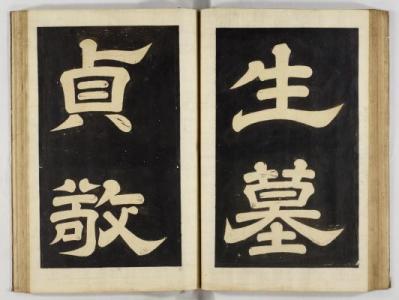 生墓
貞敬